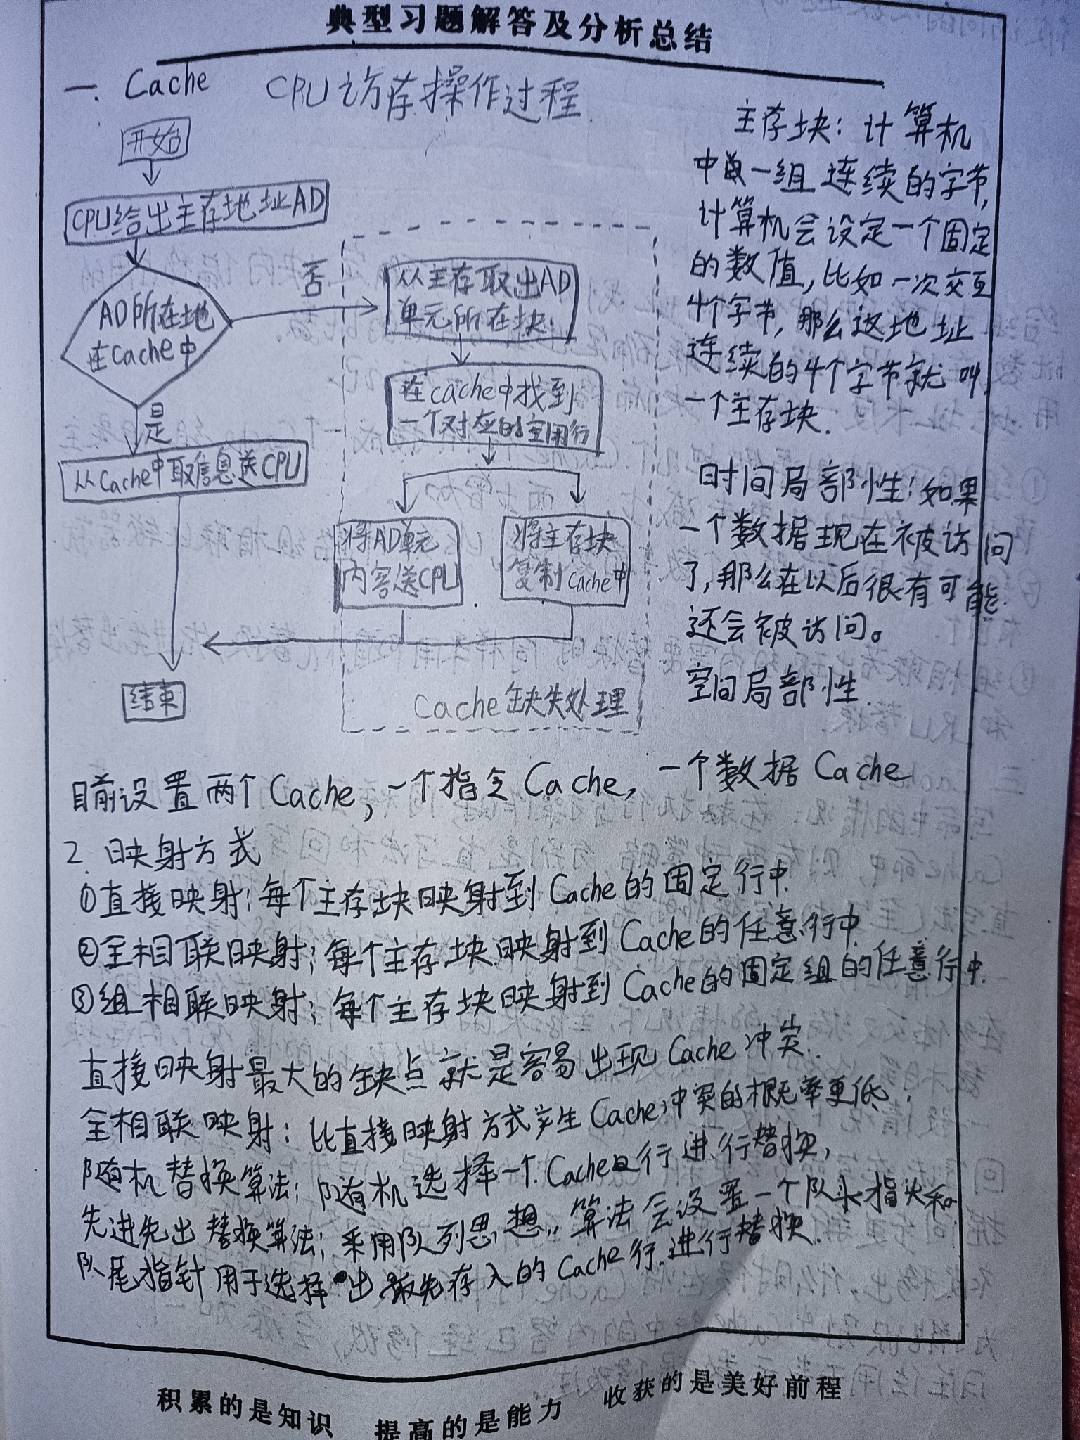 典型习题解答及分析总结
一. Cache CPU访存操作过程
开始
CPU给出主存地址AD
AD所在地
在Cache中
否
是
从Cache中取信息送CPU
结束
从主存取出AD
单元所在块
在cache中找到
一个对应的空闲行
将AD单元
内容送CPU
将主存块
复制Cache中
Cache缺失处理
主存块: 计算机
中一组连续的字节,
计算机会设定一个固定
的数值, 比如一次交互
4个字节, 那么这地址
连续的4个字节就叫
一个主存块.
时间局部性: 如果
一个数据现在被访问
了, 那么在以后很有可能
还会被访问。
空间局部性
目前设置两个Cache, 一个指令Cache, 一个数据Cache
2. 映射方式
①直接映射: 每个主存块映射到Cache的固定行中.
②全相联映射: 每个主存块映射到Cache的任意行中
③组相联映射: 每个主存块映射到Cache的固定组的任意行中.
直接映射最大的缺点就是容易出现Cache冲突.
全相联映射: 比直接映射方式产生Cache冲突的概率更低.
随机替换算法: 随机选择一个Cache行进行替换,
先进先出替换算法: 采用队列思想. 算法会设置一个队头指头和
队尾指针用于选择出最先存入的Cache行.进行替换.
积累的是知识 提高的是能力 收获的是美好前程